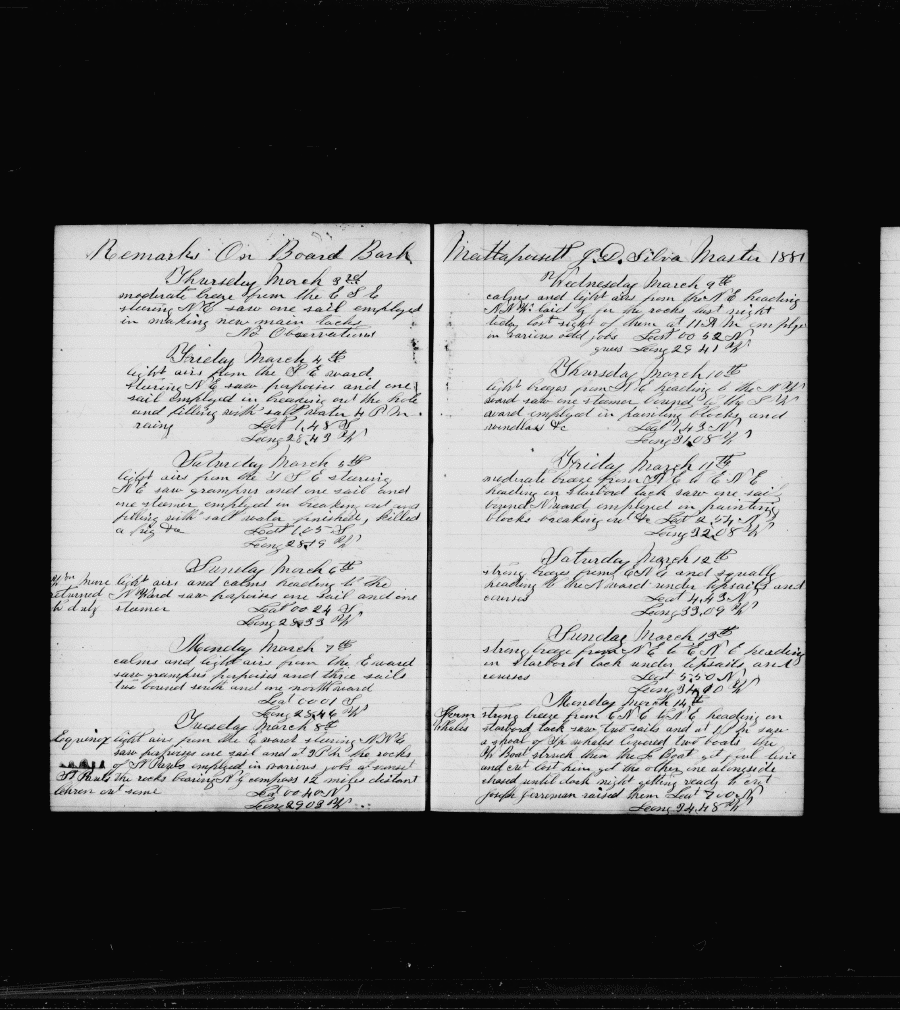 Remarks On Board Bark
Thursday March 3rd
moderate breze from the E S E
steering N E saw one sail employed
in making new main tacks
No Observations
Friday March 4th
light airs from the S E ward
steering N E saw porpoises and one
sail employed in breaking out the hole
and filling with salt water 4 P M
rainy Lat 1,48 S
Long 28,43 W
Saturday March 5th
light airs from the S S E steering
N E saw grampus and one sail and
one steamer employed in breaking out and
filling with salt water finished, killed
a pig &c Lat 1,05 S
Long 28,19 W
Sunday March 6th
light airs and calms heading to the
returned N Ward saw porpoises one sail and one
to duty steamer Lat 00 24 S
Long 28,33 W
Monday March 7th
calms and light airs from the E ward
saw grampus porpoises and three sails
two bound south and one northward
Lat 00 01 S
Long 28,46 W
Tuesday March 8th
Equinox light airs from the E ward steering N N E
saw porpoises one sail and at 3 P M the rocks
of St Pauls employed in various jobs at sunset
St Pauls the rocks baring N by compass 12 miles distant
some Lat 00 40 N
Long 29 03 W
Mattapoisett J. D. Silva Master 1881
Wednesday March 9th
calms and light airs from the N E heading
N N W laid by for the rocks last night
today lost sight of them at 11 A M employed
on various odd jobs Lat 00 52 N
Long 29 41 W
Thursday March 10th
light breezes from N E heading to the N W
ward saw one steamer bound to the S W
ward employed in painting blocks and
windlass &c Lat 1,43 N
Long 31,08 W
Friday March 11th
moderate breze from N E to E N E
heading on starbord tack saw one sail
bound N ward employed in painting
blocks breaking out &c Lat 2,54 N
Long 32,08 W
Saturday March 12th
strong breeze from E N E and squally
heading to the N ward under topsails and
courses Lat 4,43 N
Long 33,09 W
Sunday March 13th
strong breeze from N E E N E heading
on starbord tack under topsails and
courses Lat 5,50 N
Long 34,00 W
Monday March 14th
Sperm strong breeze from E N E to N E heading on
Whales starbord tack saw two sails and at 1 P M saw
a shoal of Sp whales lowered two boats the
W Boat struck then the L Boat got foul line
and cut lost him got the other one alongside
chased until dark night getting ready to cut
Joseph Ferriman raised them Lat 7 00 N
Long 34,48 W